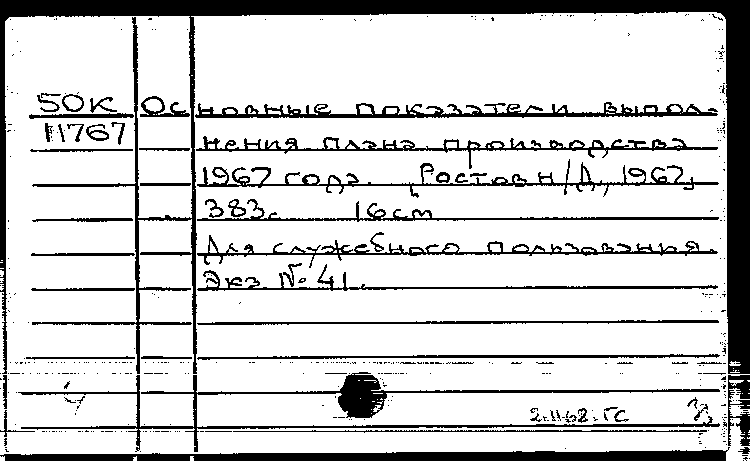 50К Основные показатели выпол-
11767 нения плана производства
1967 года. Ростов н/Д, 1967,
383с. 16cm
Для служебного пользования.
Экз. № 41.
2.1168.ГС